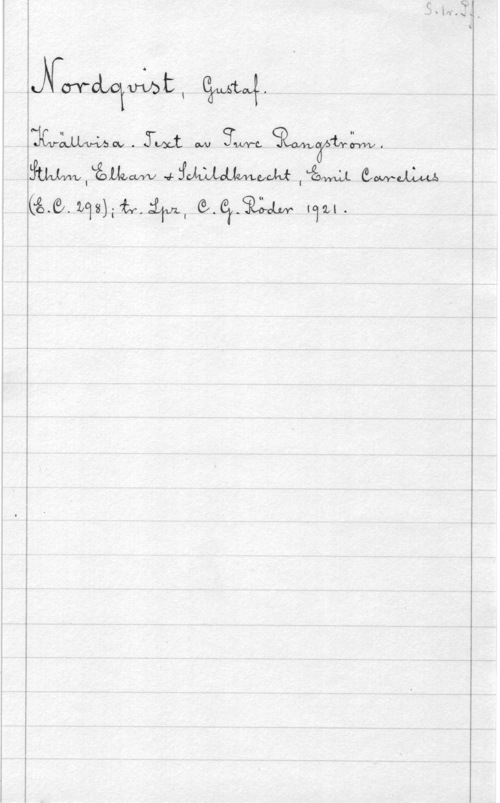 S. tr. Pf.
Nordqvist, Gustaf.
Kvällvisa. Text av Ture Rangström.
Sthlm, Elkan & Schildknecht, Emil Carelius
(E.C. 298); tr. Lpz, C.G. Röder 1921.